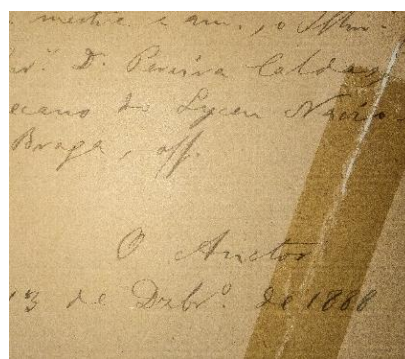 mestre e am., o Illm.
Snr. D.or Pereira Caldas
ecano do Lyceu Nacio-
Braga, off.
O Auctor
13 de Dzbr.º de 1888